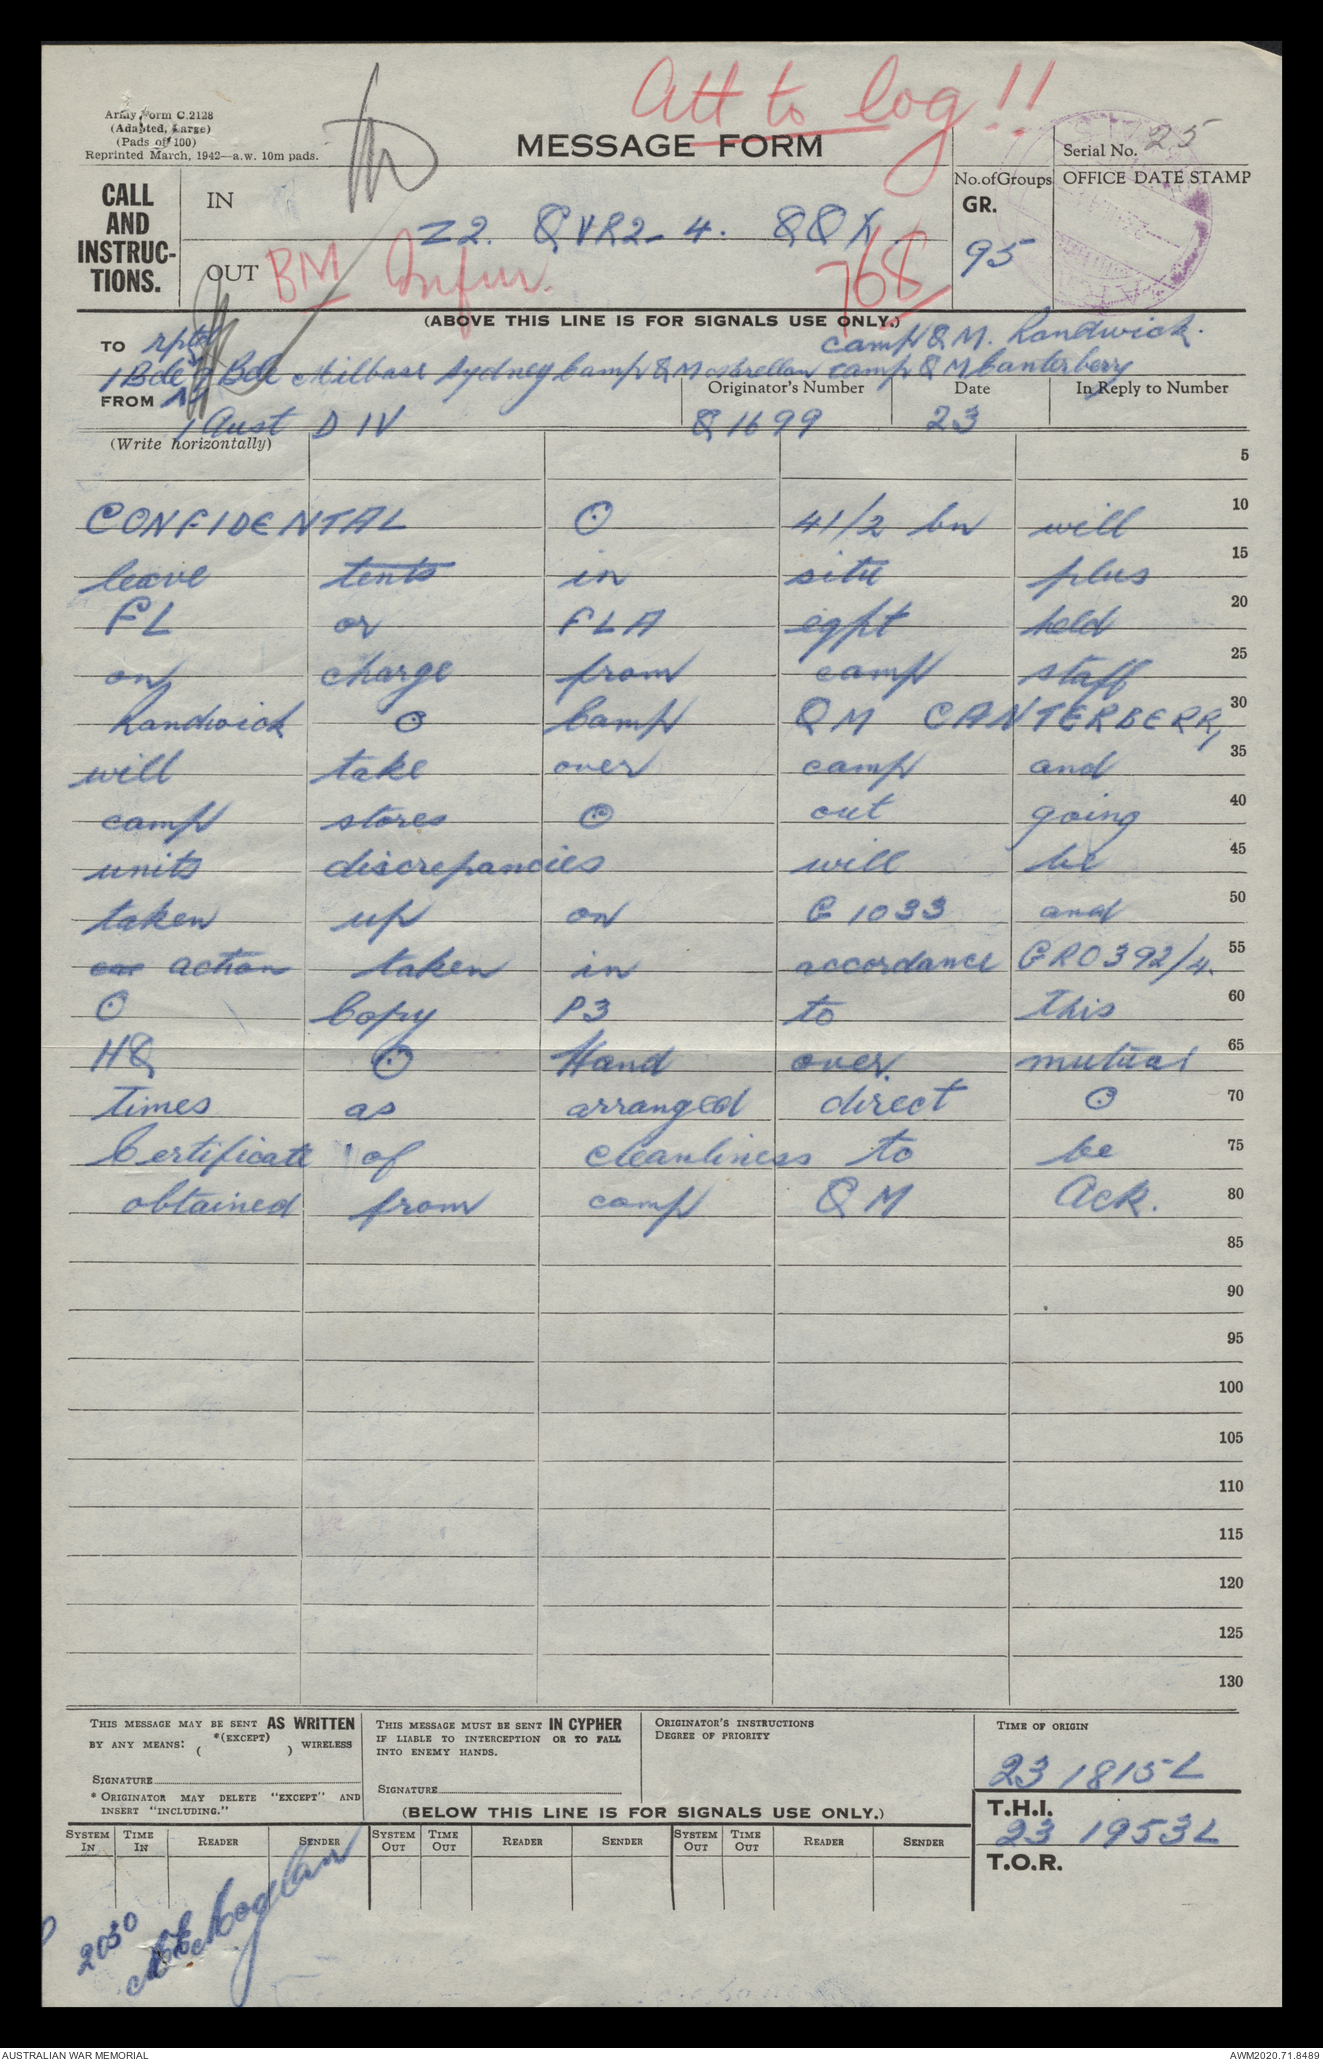 Att to log!!
Army Form C.2128
(Adapted, Large)
(Pads of 100)
Reprinted March, 1942—a.w. 10m pads.
MESSAGE FORM
Serial No. 25
CALL AND INSTRUC-TIONS.
IN
Z2. QVR2-4. QQX
OUT
BM Infm.
768
No. of Groups
GR.
95
OFFICE DATE STAMP
(ABOVE THIS LINE IS FOR SIGNALS USE ONLY.)
TO rptd camp QM. Randwick.
1 Bde 9 Bde Milbase Sydney Camp QM camp QM Canterberry
FROM
1 Aust DIV
Originator's Number
Q1699
Date
23
In Reply to Number
(Write horizontally)
5
CONFIDENTAL ⊙ 41/2 bn will 10
leave tents in situ plus 15
FL or FLA eqpt held 20
on charge from camp staff 25
Randwick ⊙ Camp QM CANTERBERRy 30
will take over camp and 35
camp stores ⊙ out going 40
units discrepancies will be 45
taken up on G1033 and 50
action taken in accordance GRO392/4. 55
⊙ Copy P3 to This 60
HQ ⊙ Hand over mutual 65
Times as arranged direct ⊙ 70
Certificate of cleanliness to be 75
obtained from camp QM Ack. 80
85
90
95
100
105
110
115
120
125
130
THIS MESSAGE MAY BE SENT AS WRITTEN
BY ANY MEANS: *(EXCEPT) ( ) WIRELESS
SIGNATURE
* ORIGINATOR MAY DELETE "EXCEPT" AND
INSERT "INCLUDING."
THIS MESSAGE MUST BE SENT IN CYPHER
IF LIABLE TO INTERCEPTION OR TO FALL
INTO ENEMY HANDS.
SIGNATURE
ORIGINATOR'S INSTRUCTIONS
DEGREE OF PRIORITY
TIME OF ORIGIN
23 1815L
(BELOW THIS LINE IS FOR SIGNALS USE ONLY.)
T.H.I.
23 1953L
T.O.R.
SYSTEM IN TIME IN READER SENDER SYSTEM OUT TIME OUT READER SENDER SYSTEM OUT TIME OUT READER SENDER
2030
AUSTRALIAN WAR MEMORIAL
AWM2020.71.8489